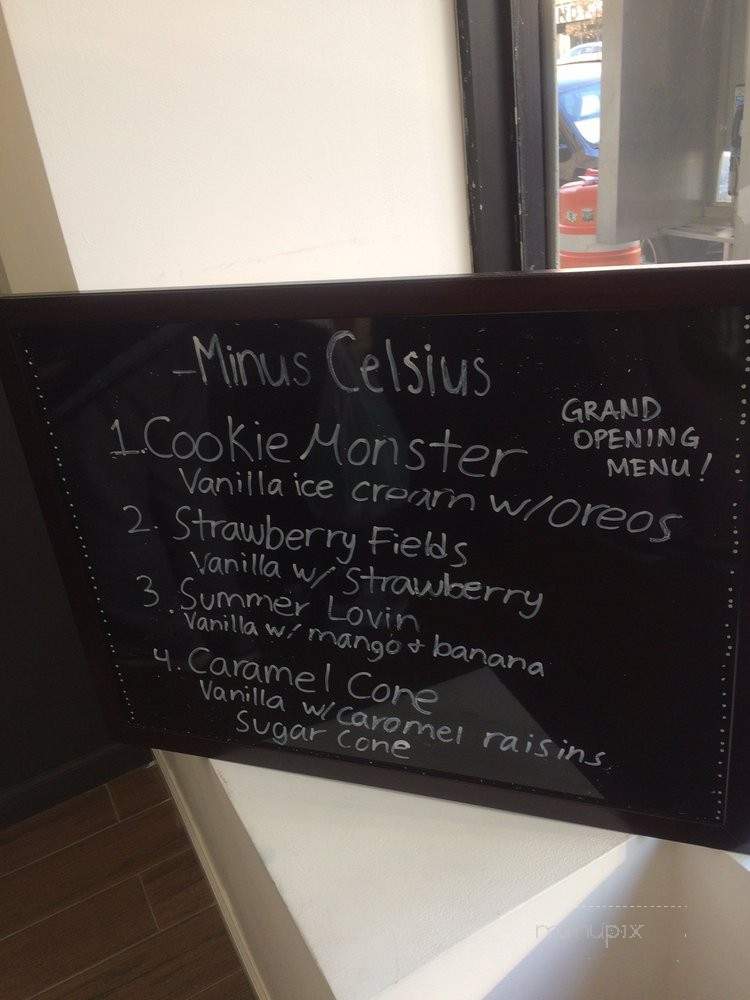 -Minus Celsius
GRAND
OPENING
MENU!
1.Cookie Monster
Vanilla ice cream w/oreos
2. Strawberry Fields
Vanilla w/ Strawberry
3. Summer Lovin
Vanilla w/ mango + banana
4. Caramel Cone
Vanilla w/caramel raisins
Sugar Cone
menupix